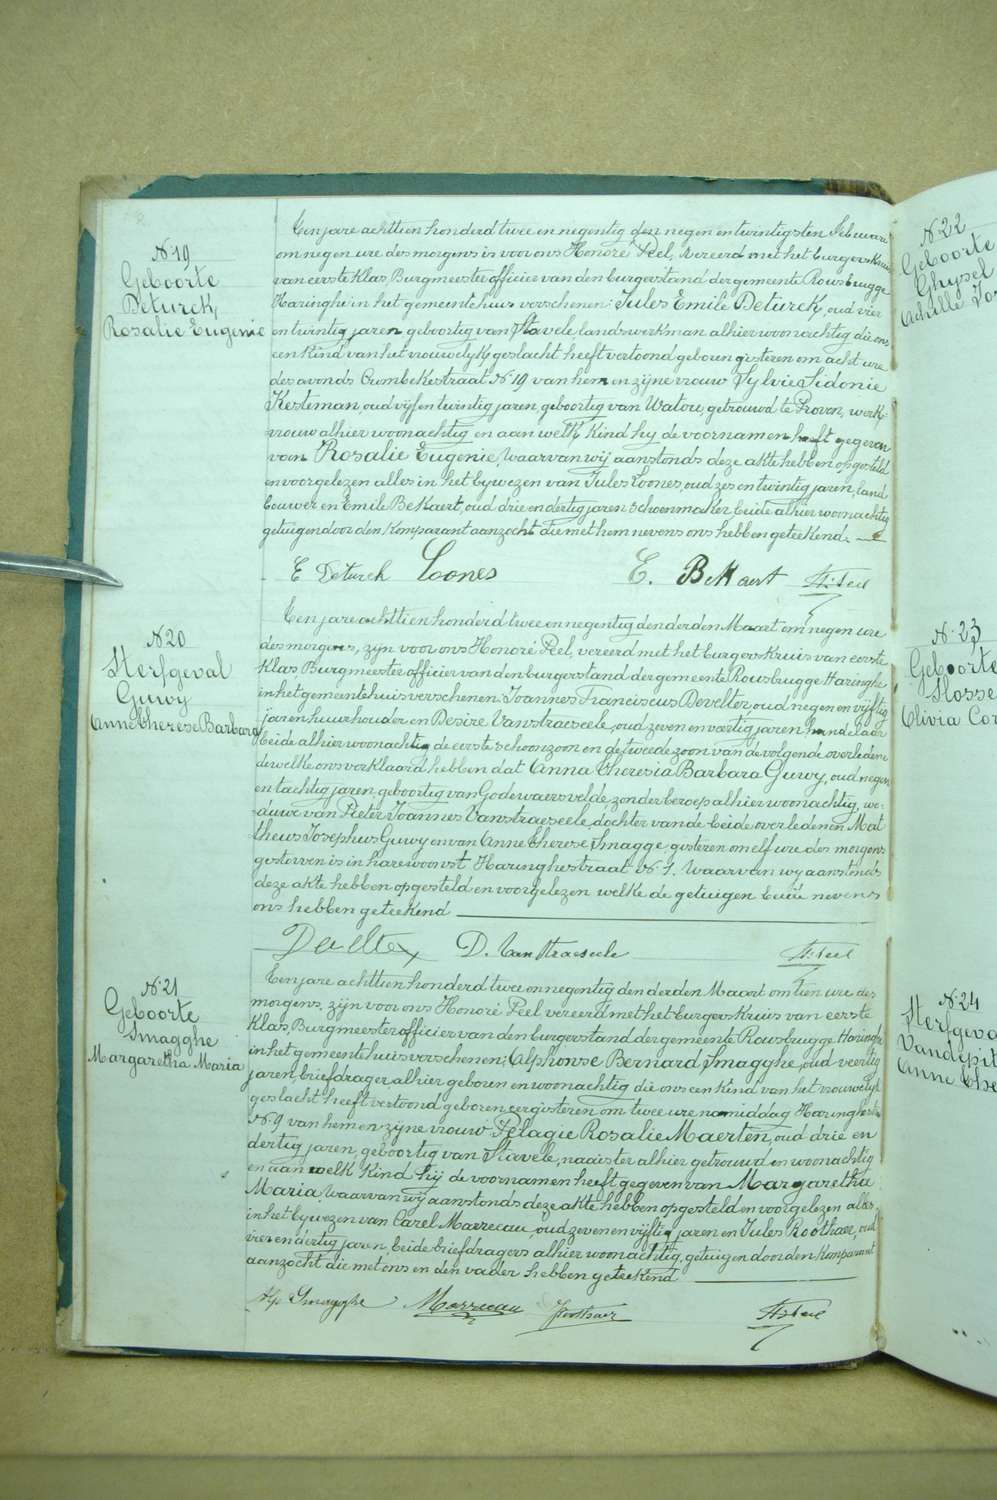 N. 19
Geboorte
Deturck,
Rosalie Eugenie
Een jare achttien honderd twee en negentig den negen en twintigsten Februari
om negen ure des morgens is voor ons Honoré Peel, vereerd met het burgerskruis
van eerste klas, Burgmeester officier van den burgerstand der gemeente Rousbrugge
Haringhe in het gemeentehuis verschenen: Jules Emile Deturck, oud vier
en twintig jaren geboortig van Stavele, landswerkman alhier woonachtig die ons
een kind van het vrouwelijk geslacht heeft vertoond geboren gisteren om acht ure
des avonds Crombekestraat N. 19 van hem en zijne vrouw Sylvie Sidonie
Kesteman, oud vijf en twintig jaren, geboortig van Watou, getrouwd te Proven, werk-
vrouw alhier woonachtig en aan welk kind hij de voornamen heeft gegeven
van Rosalie Eugenie, Waarvan wij aanstonds deze akte hebben opgesteld
en voorgelezen alles in het bijwezen van Jules Loones, oud zes en twintig jaren, land
bouwer en Emile Bekaert, oud drie en dertig jaren schoenmaker beide alhier woonachtig
getuigen door den komparant aanzocht die met hem nevens ons hebben geteekend.
E Deturck Loones E. Bekaert H. Peel
N. 20
Sterfgeval
Guwy
Anne Therese Barbara
Een jare achttien honderd twee en negentig den derden Maart om negen ure
des morgens, zijn voor ons Honoré Peel, vereerd met het burgerskruis van eerste
klas Burgmeester officier van den burgerstand der gemeente Rousbrugge Haringhe
in het gemeentehuis verschenen: Joannes Franciscus Develter, oud negen en vijftig
jaren huurhouder en Desiré Vanstraeseele, oud zeven en veertig jaren handelaar
beide alhier woonachtig de eerste schoonzoon en de tweede zoon van de volgende overledene
dewelke ons verklaard hebben dat Anna Theresia Barbara Guwy, oud negen
en tachtig jaren, geboortig van Godewaersvelde, zonder beroep alhier woonachtig, we-
duwe van Pieter Joannes Vanstraeseele, dochter van de beide overledenen Mat
theus Josephus Guwy en van Anne Therese Smagge, gisteren om elf ure des morgens
gestorven is in hare woonst Haringhestraat N. 1. Waarvan wij aanstonds
deze akte hebben opgesteld en voorgelezen welke de getuigen beide nevens
ons hebben geteekend
Develter D. Vanstraeseele H. Peel
N. 21
Geboorte
Smagghe
Margaretha Maria
Een jare achttien honderd twee en negentig den derden Maart om tien ure des
morgens, zijn voor ons Honoré Peel vereerd met het burgerskruis van eerste
klas, Burgmeester officier van den burgerstand der gemeente Rousbrugge Haringhe
in het gemeentehuis verschenen: Alphonse Bernard Smagghe, oud veertig
jaren, briefdrager, alhier geboren en woonachtig die ons een kind van het vrouwelijk
geslacht heeft vertoond geboren eergisteren om twee ure namiddag Haringhestr
N. 9 van hem en zijne vrouw Pelagie Rosalie Maerten, oud drie en
dertig jaren, geboortig van Stavele, naaister alhier getrouwd en woonachtig
en aan welk kind hij de voornamen heeft gegeven van Margaretha
Maria, Waarvan wij aanstonds deze akte hebben opgesteld en voorgelezen alles
in het bijwezen van Carel Mazzeeau, oud zeven en vijftig jaren en Jules Roothaer, oud
vier en dertig jaren, beide briefdragers alhier woonachtig, getuigen door den komparant
aanzocht die met ons en den vader hebben geteekend
Alp Smagghe Mazzeeau JRoothaer H. Peel
N. 22
Geboorte
Ghysel
Achille
N. 23
Geboorte
Slosse
N. 24
Sterfgeva
Vandepit
Anne The